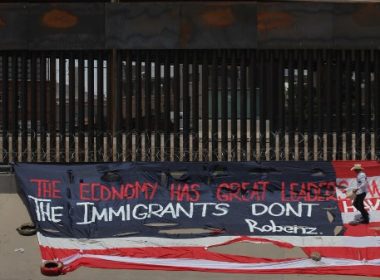 THE ECONOMY HAS GREAT LEADERS
THE IMMIGRANTS DONT
Robenz.